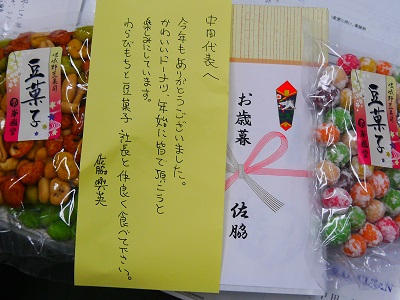 中田代表へ
今年もありがとうございました。
かわいいドーナツ、年始に皆で頂こうと
楽みにしています。
わらびもちと豆菓子、社長と仲良く食べて下さい。
お歳暮
佐脇
豆菓子
豆菓子